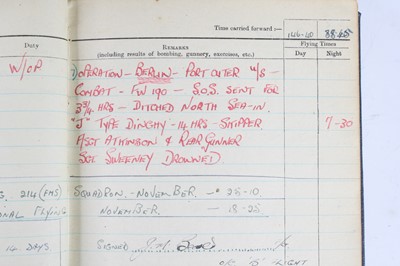 Time carried forward :— 146-40 88-25
Duty
REMARKS
(including results of bombing, gunnery, exercises, etc.)
Flying Times
Day Night
W/OP
OPERATION — BERLIN — PORT OUTER U/S —
COMBAT — FW 190 — S.O.S. SENT FOR
3¾ HRS — DITCHED NORTH SEA — IN
"J" TYPE DINGHY — 14 HRS — SKIPPER
F/SGT ATKINSON & REAR GUNNER
SGT SWEENEY DROWNED.
7-30
214 (FMS) SQUADRON — NOVEMBER — 25-10
ONAL FLYING NOVEMBER — 18-25
14 DAYS SIGNED
OC "B" FLIGHT